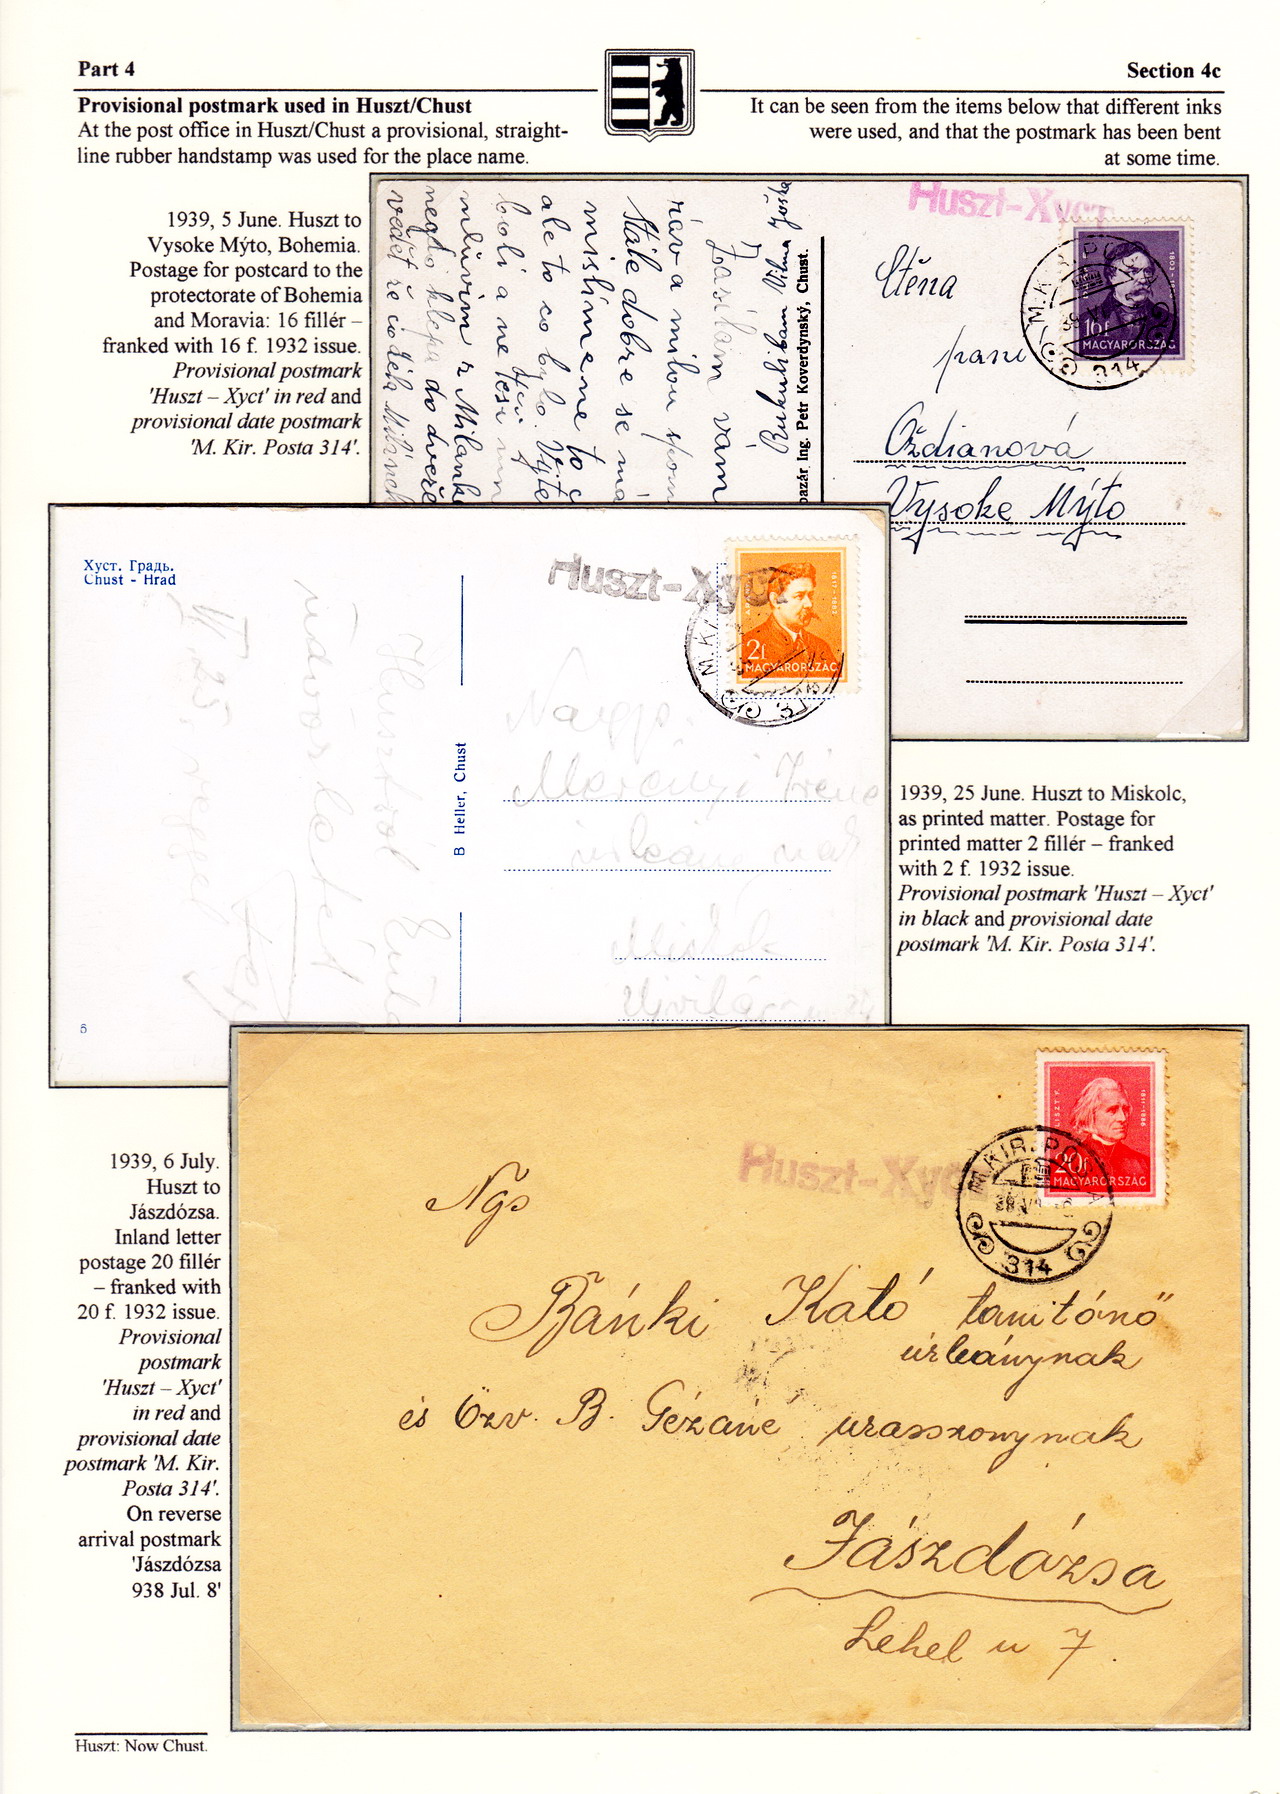 Part 4
Section 4c
Provisional postmark used in Huszt/Chust
At the post office in Huszt/Chust a provisional, straight-
line rubber handstamp was used for the place name.
It can be seen from the items below that different inks
were used, and that the postmark has been bent
at some time.
1939, 5 June. Huszt to
Vysoke Mýto, Bohemia.
Postage for postcard to the
protectorate of Bohemia
and Moravia: 16 fillér –
franked with 16 f. 1932 issue.
Provisional postmark
'Huszt – Xyct' in red and
provisional date postmark
'M. Kir. Posta 314'.
Rukulibam Vilma Joška
Zasílám vám
Stále dobře se
mislíme ne to
ale to co bylo.
boli a ne
mluvím z
do dveře
bazár Ing. Petr Koverdynský, Chust.
Huszt-Хуст
16f
MAGYARORSZÁG
314
Ctěná
paní
Oždianová
Vysoke Mýto
Хуст. Градъ.
Chust - Hrad
Huszt-Хуст
1817-1882
2f
MAGYARORSZÁG
314
Husztról
B Heller, Chust
Miskolc
6
1939, 25 June. Huszt to Miskolc,
as printed matter. Postage for
printed matter 2 fillér – franked
with 2 f. 1932 issue.
Provisional postmark 'Huszt – Xyct'
in black and provisional date
postmark 'M. Kir. Posta 314'.
1939, 6 July.
Huszt to
Jászdózsa.
Inland letter
postage 20 fillér
– franked with
20 f. 1932 issue.
Provisional
postmark
'Huszt – Xyct'
in red and
provisional date
postmark 'M. Kir.
Posta 314'.
On reverse
arrival postmark
'Jászdózsa
938 Jul. 8'
1811-1886
20f
MAGYARORSZÁG
M.KIR.POSTA
314
Huszt-Хуст
Ngs
Bánki Kató tanitónő
úrleánynak
és Özv. B. Gézáné urasszonynak
Jászdózsa
Lehel u 7
Huszt: Now Chust.